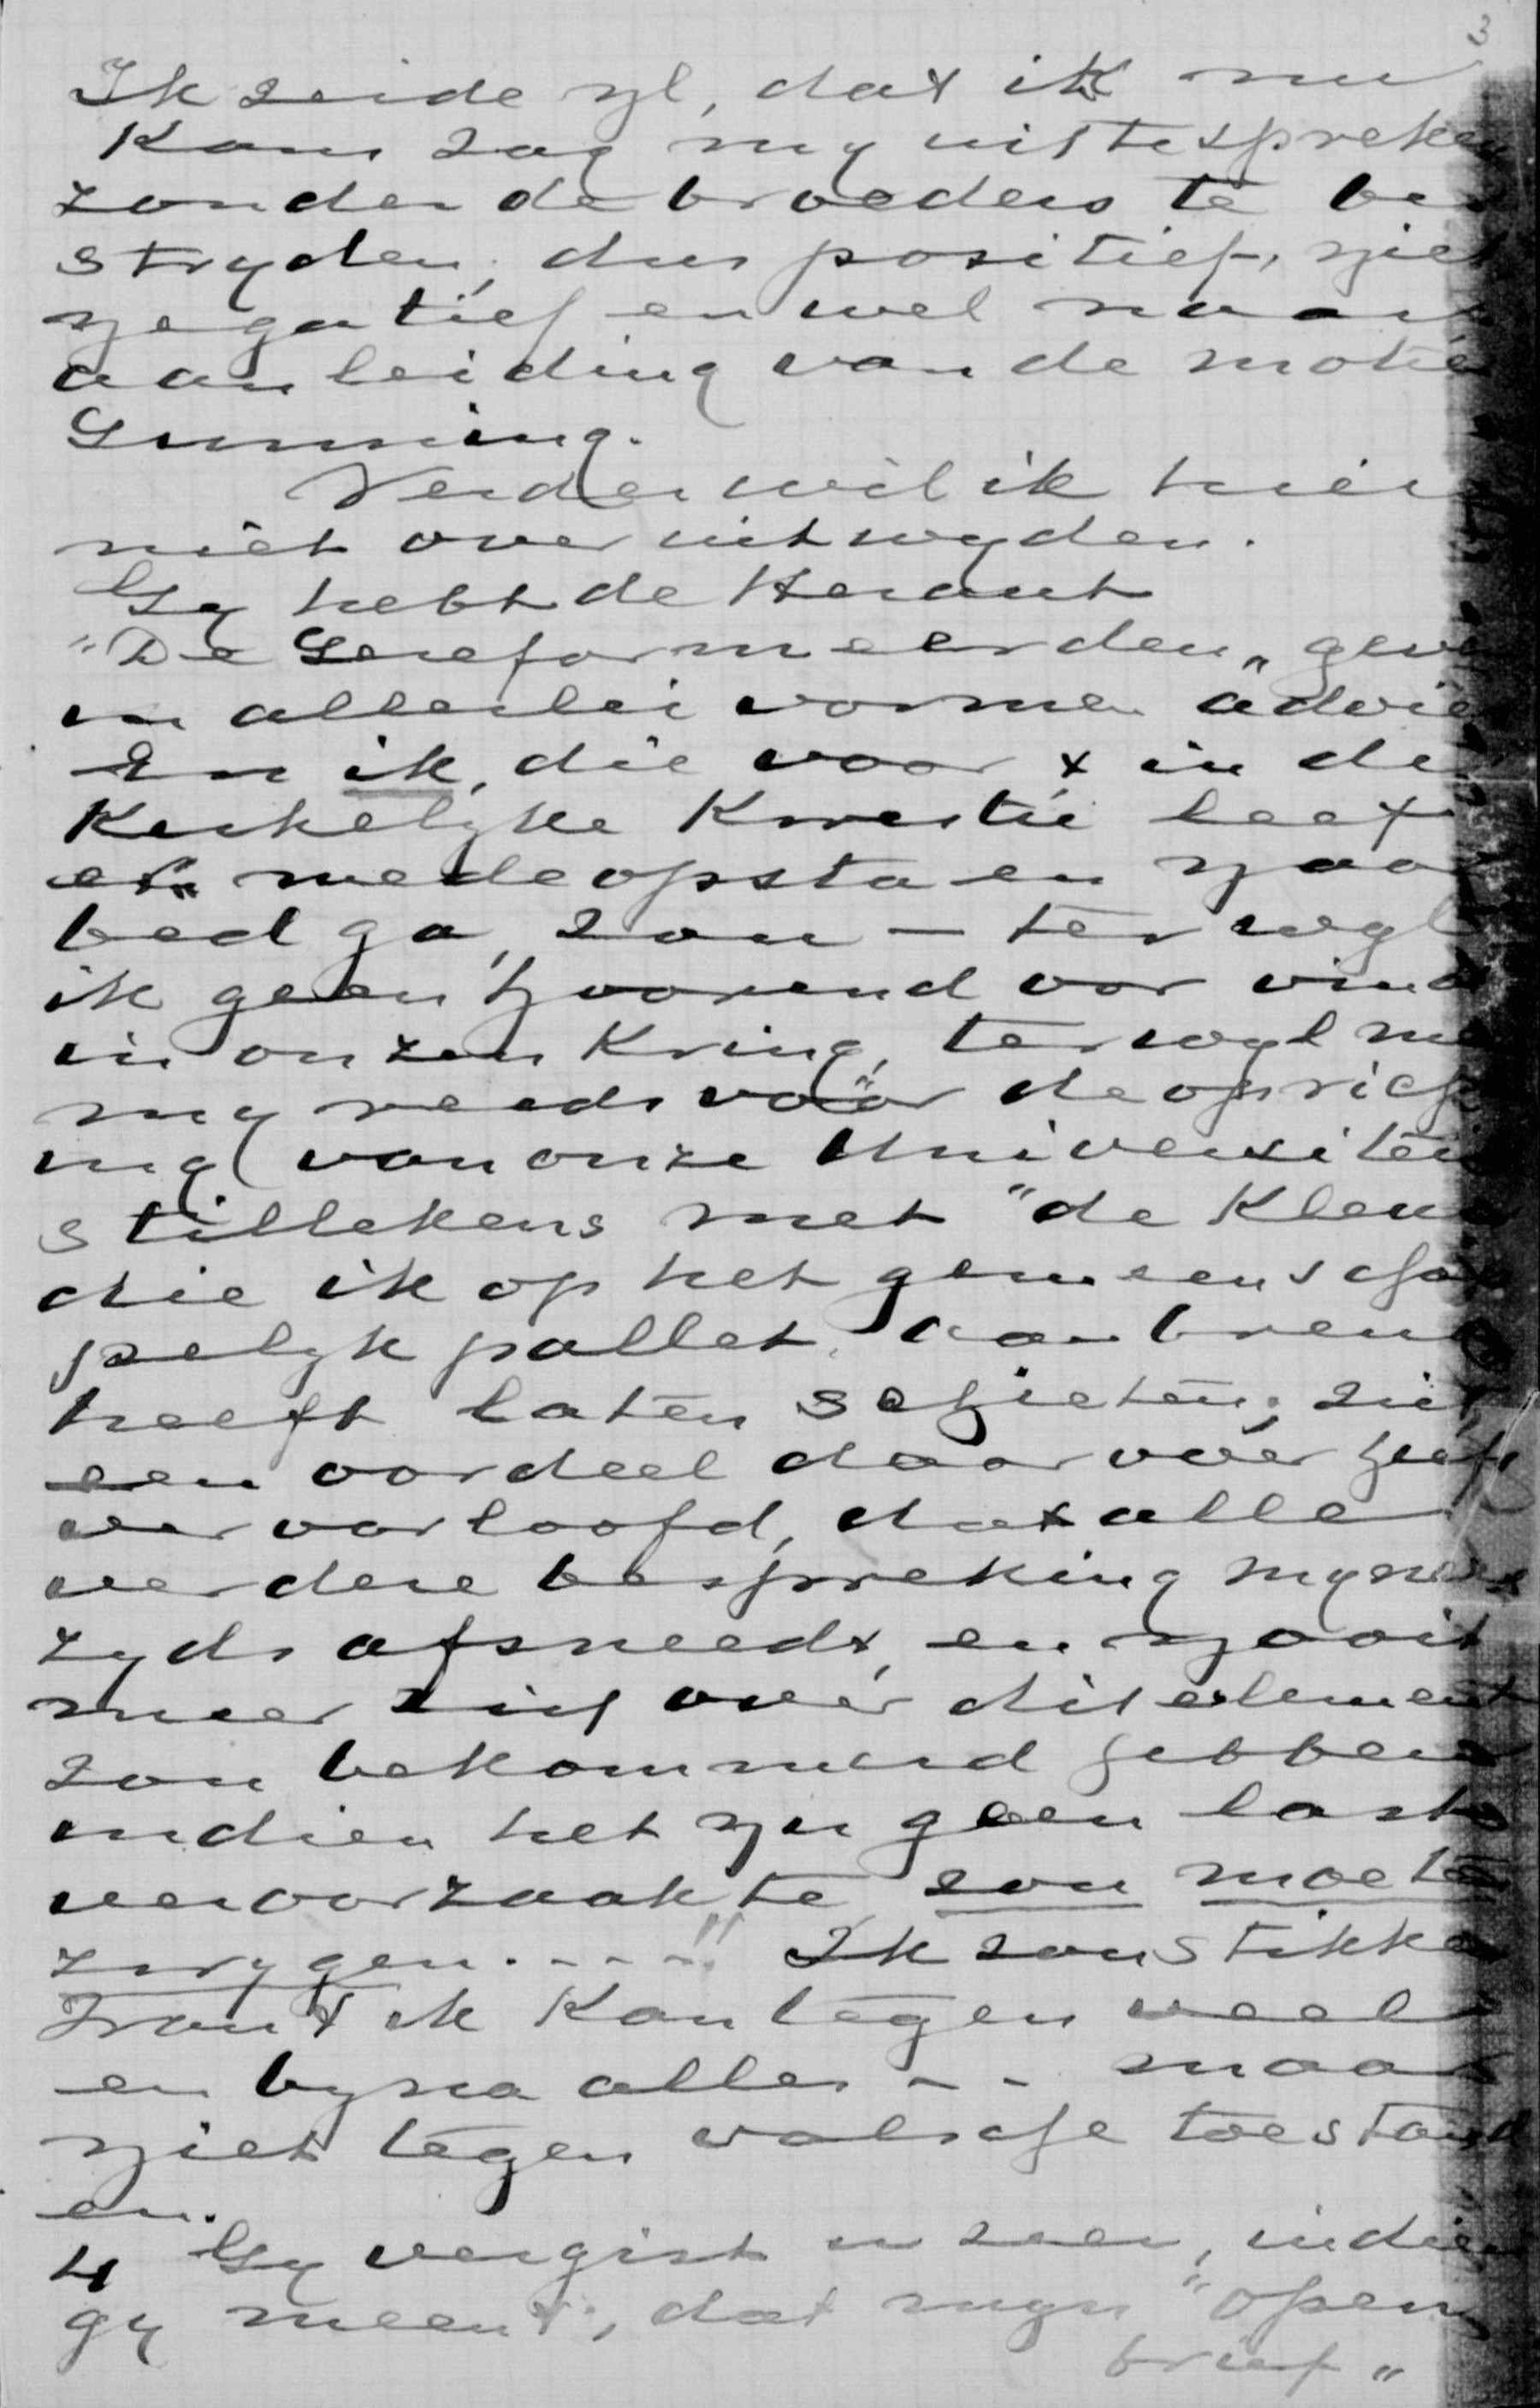 3
Ik zeide nl, dat ik nu
kans zag my uit te spreken
zonder de broeders te be
stryden, dus positief, niet
negatief en wel naar
aanleiding van de motie
Gunning.
Verder wil ik hier
niet over uitwyden.
Gy hebt de Heraut
"De Gereformeerden" geve
in allerlei vormen advie
En ik, die voor & in de
Kerkelyke Kwestie leef
er mede opsta en naar
bed ga, zou — terwyl
ik geen hoorend oor vind
in onzen Kring, terwyl me
my reeds vóór de oprich
ing van onze Universitei
stillekens met "de Kleur
die ik op het gemeenschap
pelyk pallet aanbreng
heeft laten schieten; zich
een oordeel daarover heeft
veroorloofd, dat alle
verdere bespreking myner
zyds afsneedt, en nooit
meer zich over dit element
zou bekommerd hebben
indien het zyn geen last
veroorzaakte zou moeten
zwygen....!! Ik zou stikken
Want ik kan tegen veel
en byna alles -- maar
niet tegen valsche toestand
en.
4 Gy vergist u zeer, indien
gy meent, dat myn "open
brief"